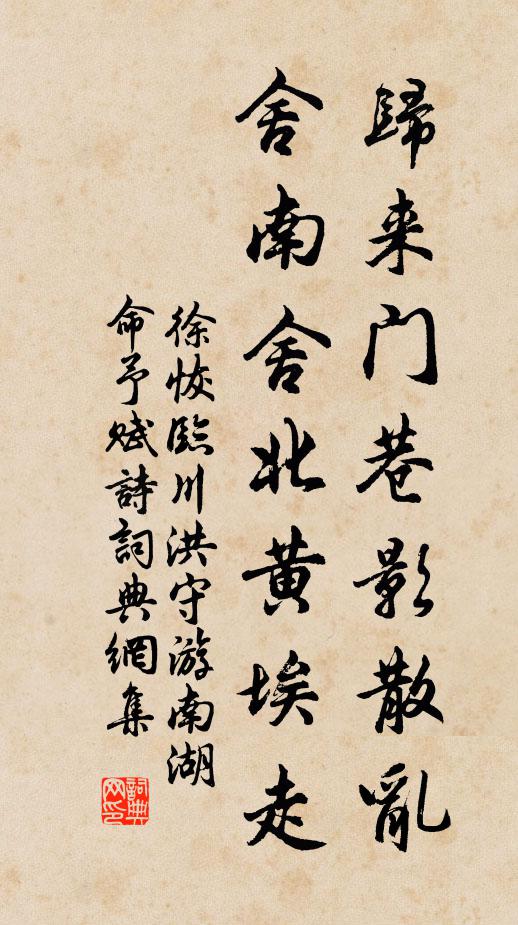 歸来門巷影散亂
舍南舍北黄埃走
徐恢臨川洪守游南湖
命予賦詩詞典網集
詞典网印